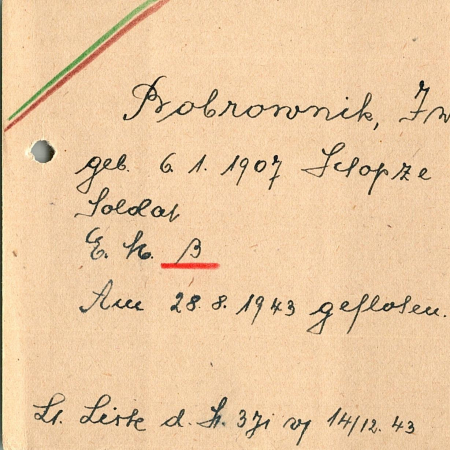 Bobrownik, Iw
geb. 6. 1. 1907 Slopze
Soldat
E. K. B
Am 28. 8. 1943 geflosen.
Lt. Liste d. 14/12. 43